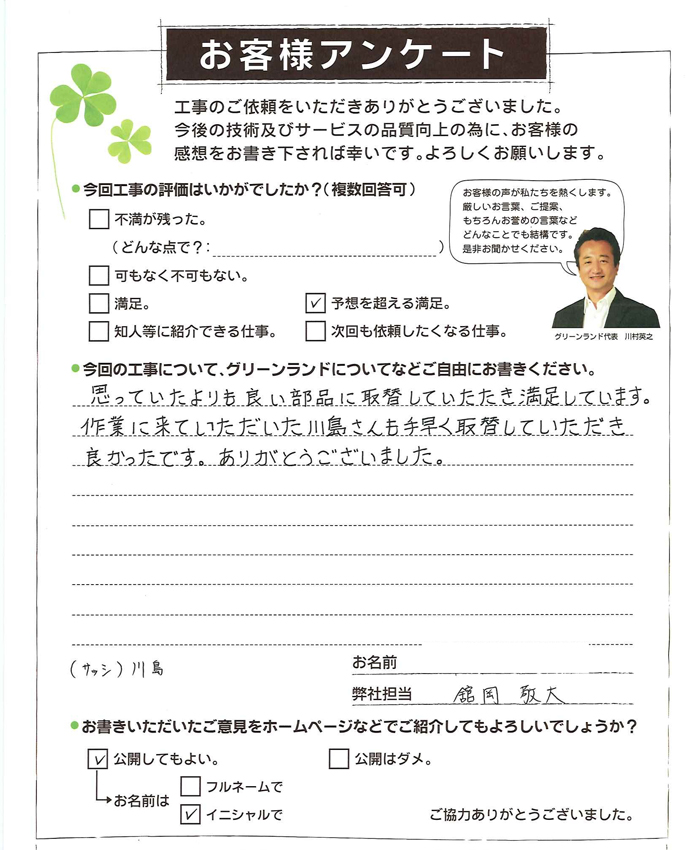 お客様アンケート
工事のご依頼をいただきありがとうございました。
今後の技術及びサービスの品質向上の為に、お客様の
感想をお書き下されば幸いです。よろしくお願いします。
今回工事の評価はいかがでしたか?(複数回答可)
不満が残った。
(どんな点で?: )
可もなく不可もない。
満足。
✓ 予想を超える満足。
知人等に紹介できる仕事。
次回も依頼したくなる仕事。
お客様の声が私たちを熱くします。
厳しいお言葉、ご提案、
もちろんお誉めの言葉など
どんなことでも結構です。
是非お聞かせください。
グリーンランド代表 川村英之
今回の工事について、グリーンランドについてなどご自由にお書きください。
思っていたよりも良い部品に取替していたたき満足しています。
作業に来ていただいた川島さんも手早く取替していただき
良かったです。ありがとうございました。
(サッシ)川島
お名前
弊社担当 舘岡 敬大
お書きいただいたご意見をホームページなどでご紹介してもよろしいでしょうか?
✓ 公開してもよい。
公開はダメ。
お名前は
フルネームで
✓ イニシャルで
ご協力ありがとうございました。